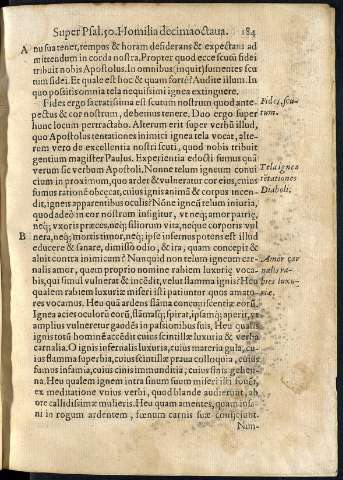 Super Psal. 50. Homilia decimaoctaua. 184
A nu sua tenet, tempus & horam desiderans & expectans ad
mittendum in corda nostra. Propter quod ecce scutũ fidei
tribuit nobis Apostolus. In omnibus (inquit) sumentes scu
tum fidei. Et quale est hoc & quam forte? Audite illum. In
quo positis omnia tela nequissimi ignea extinguere.
Fides ergo sacratissima est scutum nostrum quod ante
pectus & cor nostrum, debemus tenere. Duo ergo super
hunc locum pertractabo. Alterum erit super verbũ illud,
quo Apostolus tentationes inimici ignea tela vocat, alte-
rem vero de excellentia nostri scuti, quod nobis tribuit
gentium magister Paulus. Experientia edocti sumus quã
verum sic verbum Apostoli. Nonne telum igneum conui
cium in proximum, quo ardet & vulneratur cor eius, cuius
fumus rationẽ obcęcat, cuius ignis animũ & corpus incen-
dit, igneis apparentibus oculis? Nõne igneũ telum iniuria,
quod adeò in cor nostrum insigitur, vt neq; amor patrię,
neq; vxoris pręces, neq; filiorum vita, neque corporis vul
B nera, neq; mortis timor, neq; ipse infernus potens est illud
educere & sanare, dimisso odio, & ira, quam concepit &
aloit contra inimicum? Nunquid non telum igneum car-
nalis amor, quem proprio nomine rabiem luxurię voca-
bis, qui simul vulnerat & incẽdit, velut flamma ignis? Heu
qualem rabiem luxurię miseri isti patiuntur quos amato-
res vocamus. Heu quã ardens flãma concupiscentię eorũ.
Ignea acies oculorũ eorũ, flãmasq; spirat, ipsamq; aperit, vt
amplius vulneretur gaudẽs in passionibus suis, Heu qualis
ignis totũ hominẽ accẽdit cuius scintillæ luxuria & verba
carnalia. O ignis infernalis luxuria, cuius materia gula, cu
ius flamma superbia, cuius scintillæ praua colloquia, cuius
fumus infamia, cuius cinis immunditia, cuius finis gehen-
na. Heu qualem ignem intra sinum suum miseri isti fouẽt,
ex meditatione vnius verbi, quod blande audierunt, ab
ore callidissimæ mulieris. Heu quam amentes, quam insa-
ni in rogum ardentem, fœnum carnis suæ conijciunt.
Nun-
Fides, scu-
tum.
Tela ignea
tẽtationes
Diaboli.
Amor car
nalis ra-
bies luxu-
riæ.